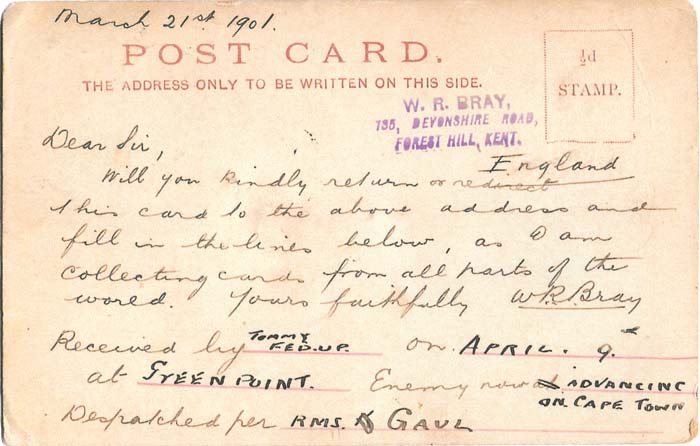 March 21st 1901.
POST CARD.
THE ADDRESS ONLY TO BE WRITTEN ON THIS SIDE.
½d
STAMP.
W. R. BRAY,
135, DEVONSHIRE ROAD,
FOREST HILL, KENT.
England
Dear Sir,
Will you kindly return or redirect
this card to the above address and
fill in the lines below, as I am
collecting cards from all parts of the
world. Yours faithfully W.R.Bray
Received by TOMMY FED.UP. on APRIL. 9
at GREEN POINT. Enemy now ADVANCING
ON CAPE TOWN
Despatched per RMS. GAUL